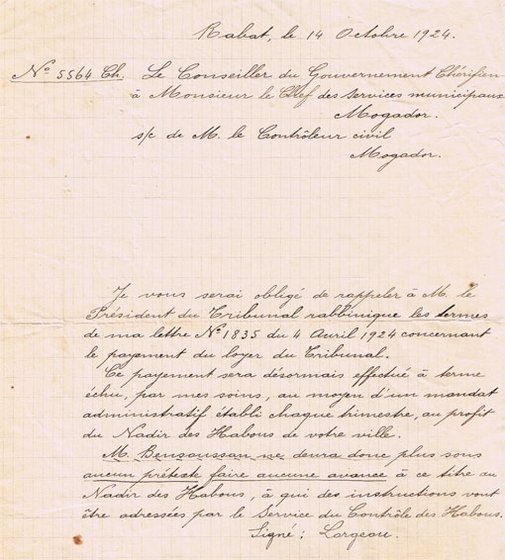 Rabat, le 14 Octobre 1924.
Nº 5564 Ch. Le Conseiller du Gouvernement Chérifien
à Monsieur le Chef des Services municipaux
Mogador.
s/c de M. le Contrôleur civil
Mogador.
Je vous serai obligé de rappeler à M. le
Président du Tribunal rabbinique les termes
de ma lettre Nº 1835 du 4 Avril 1924 concernant
le payement du loyer du Tribunal.
Ce payement sera désormais effectué à terme
échu, par mes soins, au moyen d'un mandat
administratif établi chaque trimestre, au profit
du Nadir des Habous de votre ville.
M. Bensaussan ne devra donc plus sous
aucun prétexte faire aucune avance à ce titre au
Nadir des Habous, à qui des instructions vont
être adressées par le Service du Contrôle des Habous.
Signé: Largeau.